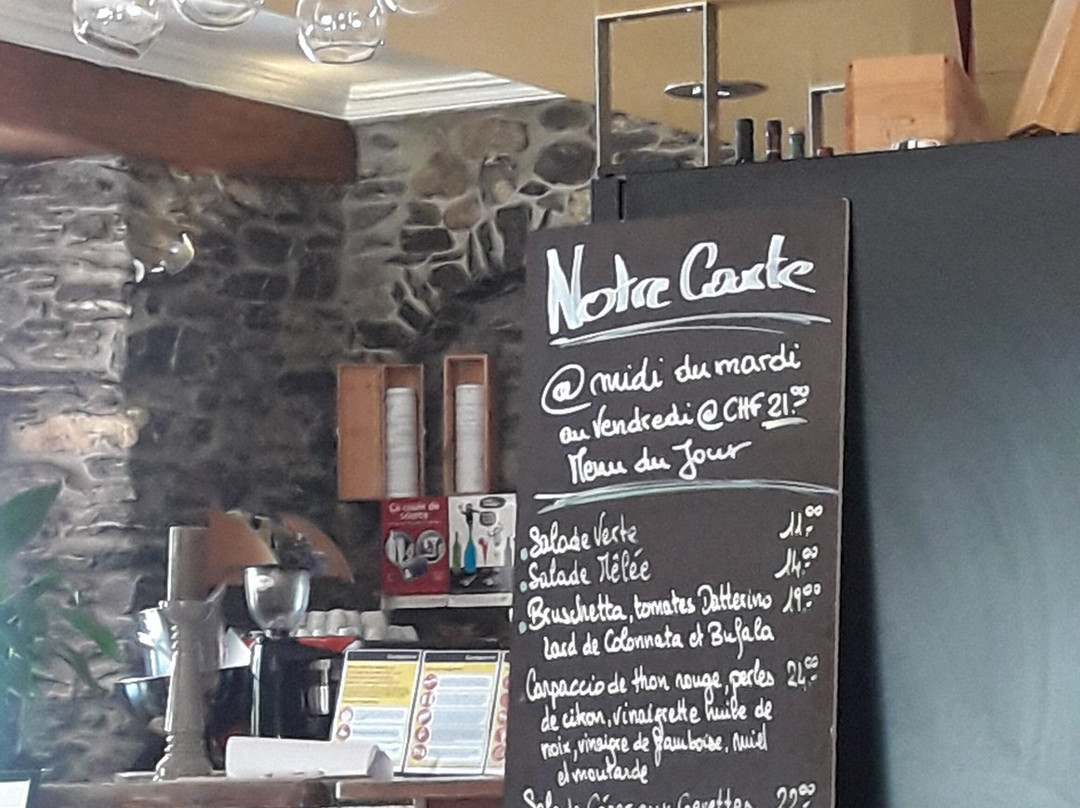 Notre Carte
@ midi du mardi
au Vendredi @ CHF 21.00
Menu du Jour
Salade Verte 11.00
Salade Mêlée 14.00
Bruschetta, tomates Datterino 19.00
lard de Colonnata et Bufala
Carpaccio de thon rouge, perles 24.00
de citron, vinaigrette huile de
noix, vinaigre de framboise, miel
et moutarde
Salade César aux Gavettes 22.00